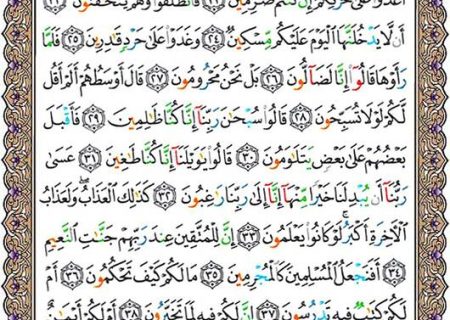 ٱغْدُوا۟ عَلَىٰ حَرْثِكُمْ إِن كُنتُمْ صَٰرِمِينَ ﴿٢٢﴾ فَٱنطَلَقُوا۟ وَهُمْ يَتَخَٰفَتُونَ ﴿٢٣﴾
أَن لَّا يَدْخُلَنَّهَا ٱلْيَوْمَ عَلَيْكُم مِّسْكِينٌ ﴿٢٤﴾ وَغَدَوْا۟ عَلَىٰ حَرْدٍ قَٰدِرِينَ ﴿٢٥﴾ فَلَمَّا
رَأَوْهَا قَالُوٓا۟ إِنَّا لَضَآلُّونَ ﴿٢٦﴾ بَلْ نَحْنُ مَحْرُومُونَ ﴿٢٧﴾ قَالَ أَوْسَطُهُمْ أَلَمْ أَقُل
لَّكُمْ لَوْلَا تُسَبِّحُونَ ﴿٢٨﴾ قَالُوا۟ سُبْحَٰنَ رَبِّنَآ إِنَّا كُنَّا ظَٰلِمِينَ ﴿٢٩﴾ فَأَقْبَلَ
بَعْضُهُمْ عَلَىٰ بَعْضٍ يَتَلَٰوَمُونَ ﴿٣٠﴾ قَالُوا۟ يَٰوَيْلَنَآ إِنَّا كُنَّا طَٰغِينَ ﴿٣١﴾ عَسَىٰ
رَبُّنَآ أَن يُبْدِلَنَا خَيْرًا مِّنْهَآ إِنَّآ إِلَىٰ رَبِّنَا رَٰغِبُونَ ﴿٣٢﴾ كَذَٰلِكَ ٱلْعَذَابُ ۖ وَلَعَذَابُ
ٱلْءَاخِرَةِ أَكْبَرُ ۚ لَوْ كَانُوا۟ يَعْلَمُونَ ﴿٣٣﴾ إِنَّ لِلْمُتَّقِينَ عِندَ رَبِّهِمْ جَنَّٰتِ ٱلنَّعِيمِ
﴿٣٤﴾ أَفَنَجْعَلُ ٱلْمُسْلِمِينَ كَٱلْمُجْرِمِينَ ﴿٣٥﴾ مَا لَكُمْ كَيْفَ تَحْكُمُونَ ﴿٣٦﴾ أَمْ
لَكُمْ كِتَٰبٌ فِيهِ تَدْرُسُونَ ﴿٣٧﴾ إِنَّ لَكُمْ فِيهِ لَمَا تَخَيَّرُونَ ﴿٣٨﴾ أَمْ لَكُمْ أَيْمَٰنٌ